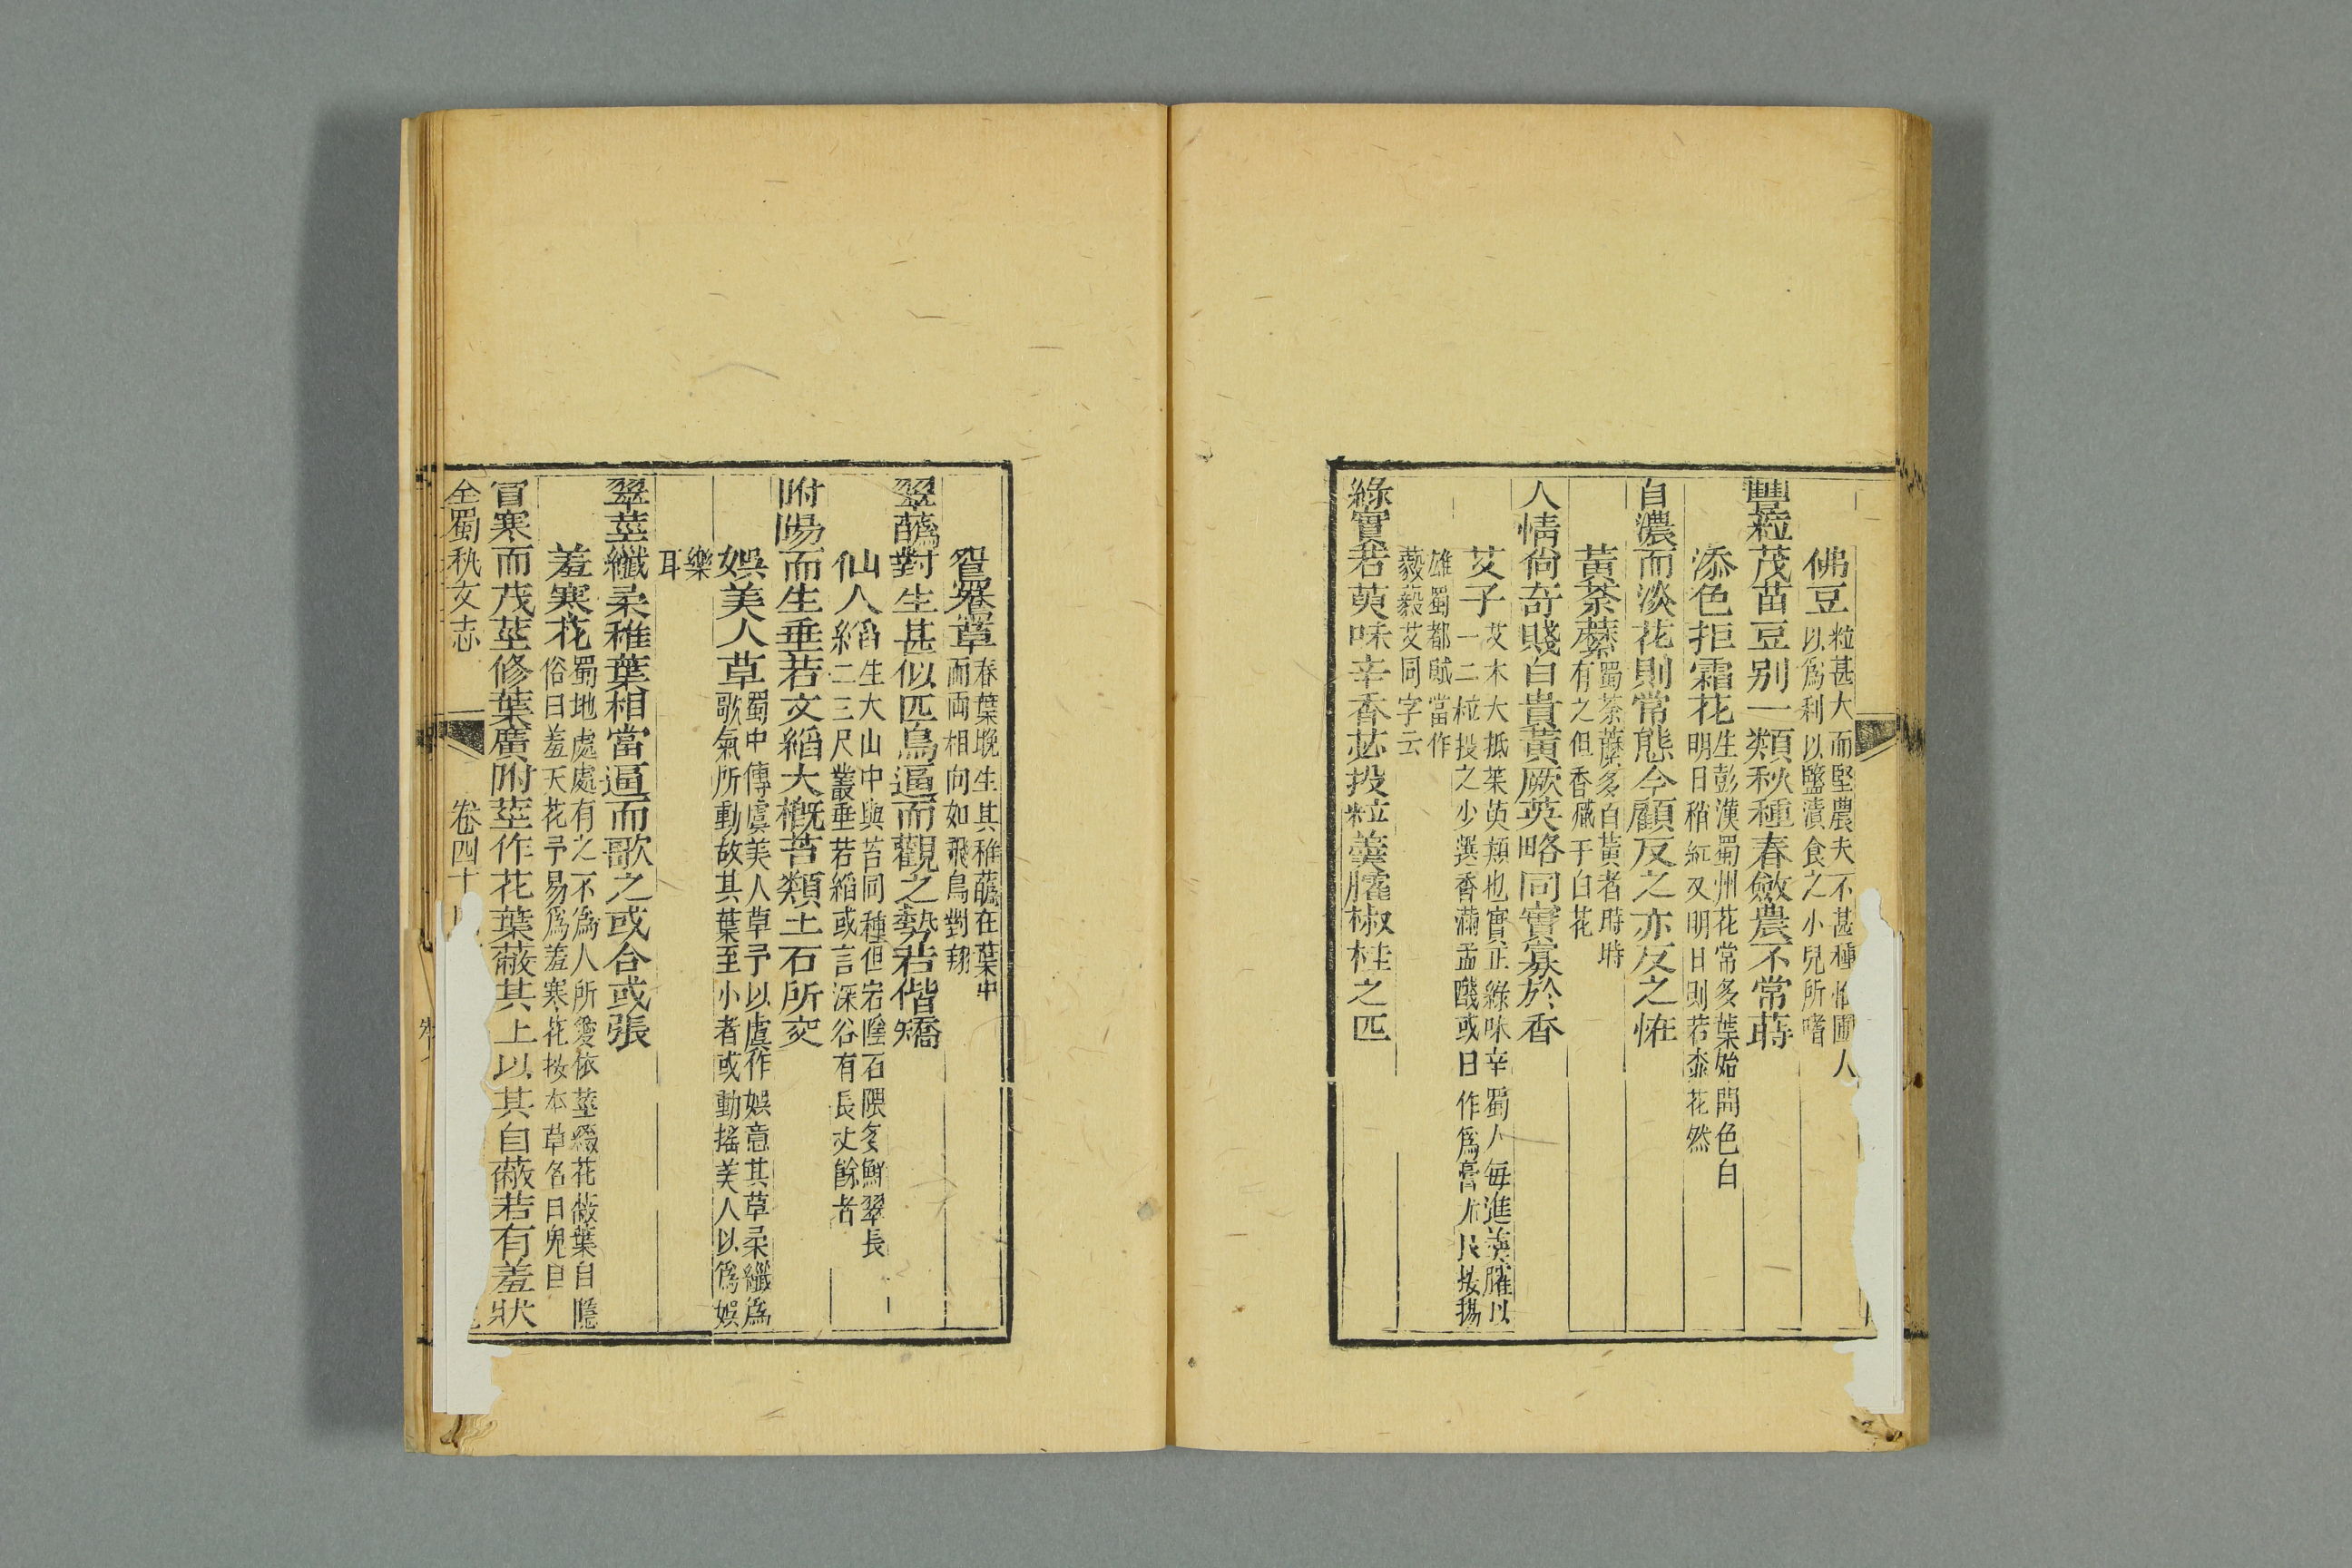 佛豆
粒甚大而堅農夫不甚種惟圃人
以爲利以鹽漬食之小兒所嗜
豐粒茂苗豆别一類秋種春斂農不常蒔
添色拒霜花
生彭漢蜀州花常多葉始開色白
明日稍紅又明日則若桃花然
自濃而淡花則常態今顧反之亦反之恠
黃荼蘼
蜀荼蘼多白黃者時時
有之但香減于白花
人情尙奇賤白貴黃厥英略同實寡於香
艾子
艾木大抵茱萸類也實正綠味辛蜀人每進羹臛以
一二粒投之少選香滿盂醆或曰作爲膏尤良按揚
雄蜀都賦當作
藙藙艾同字云
綠實若萸味辛香苾投粒羹臛椒桂之匹
鴛鴦草
春葉晩生其稚蘤在葉中
兩兩相向如飛鳥對翔
翠蘤對生甚似匹鳥逼而觀之勢若偕矯
仙人縚
生大山中與苔同種但岩陰石隈多鮮翠長
二三尺叢垂若縚或言深谷有長丈餘者
附陽而生垂若文縚大槪苔類土石所交
娛美人草
蜀中傳虞美人草予以虞作娛意其草柔纖爲
歌氣所動故其葉至小者或動搖美人以爲娛
樂
耳
翠莖纖柔稚葉相當逼而歌之或合或張
羞寒花
蜀地處處有之不爲人所愛依莖綴花蔽葉自隱
俗曰羞天花予易爲羞寒花按本草名曰鬼臼
冒寒而茂莖修葉廣附莖作花葉蔽其上以其自蔽若有羞狀
全蜀秇文志
卷四十